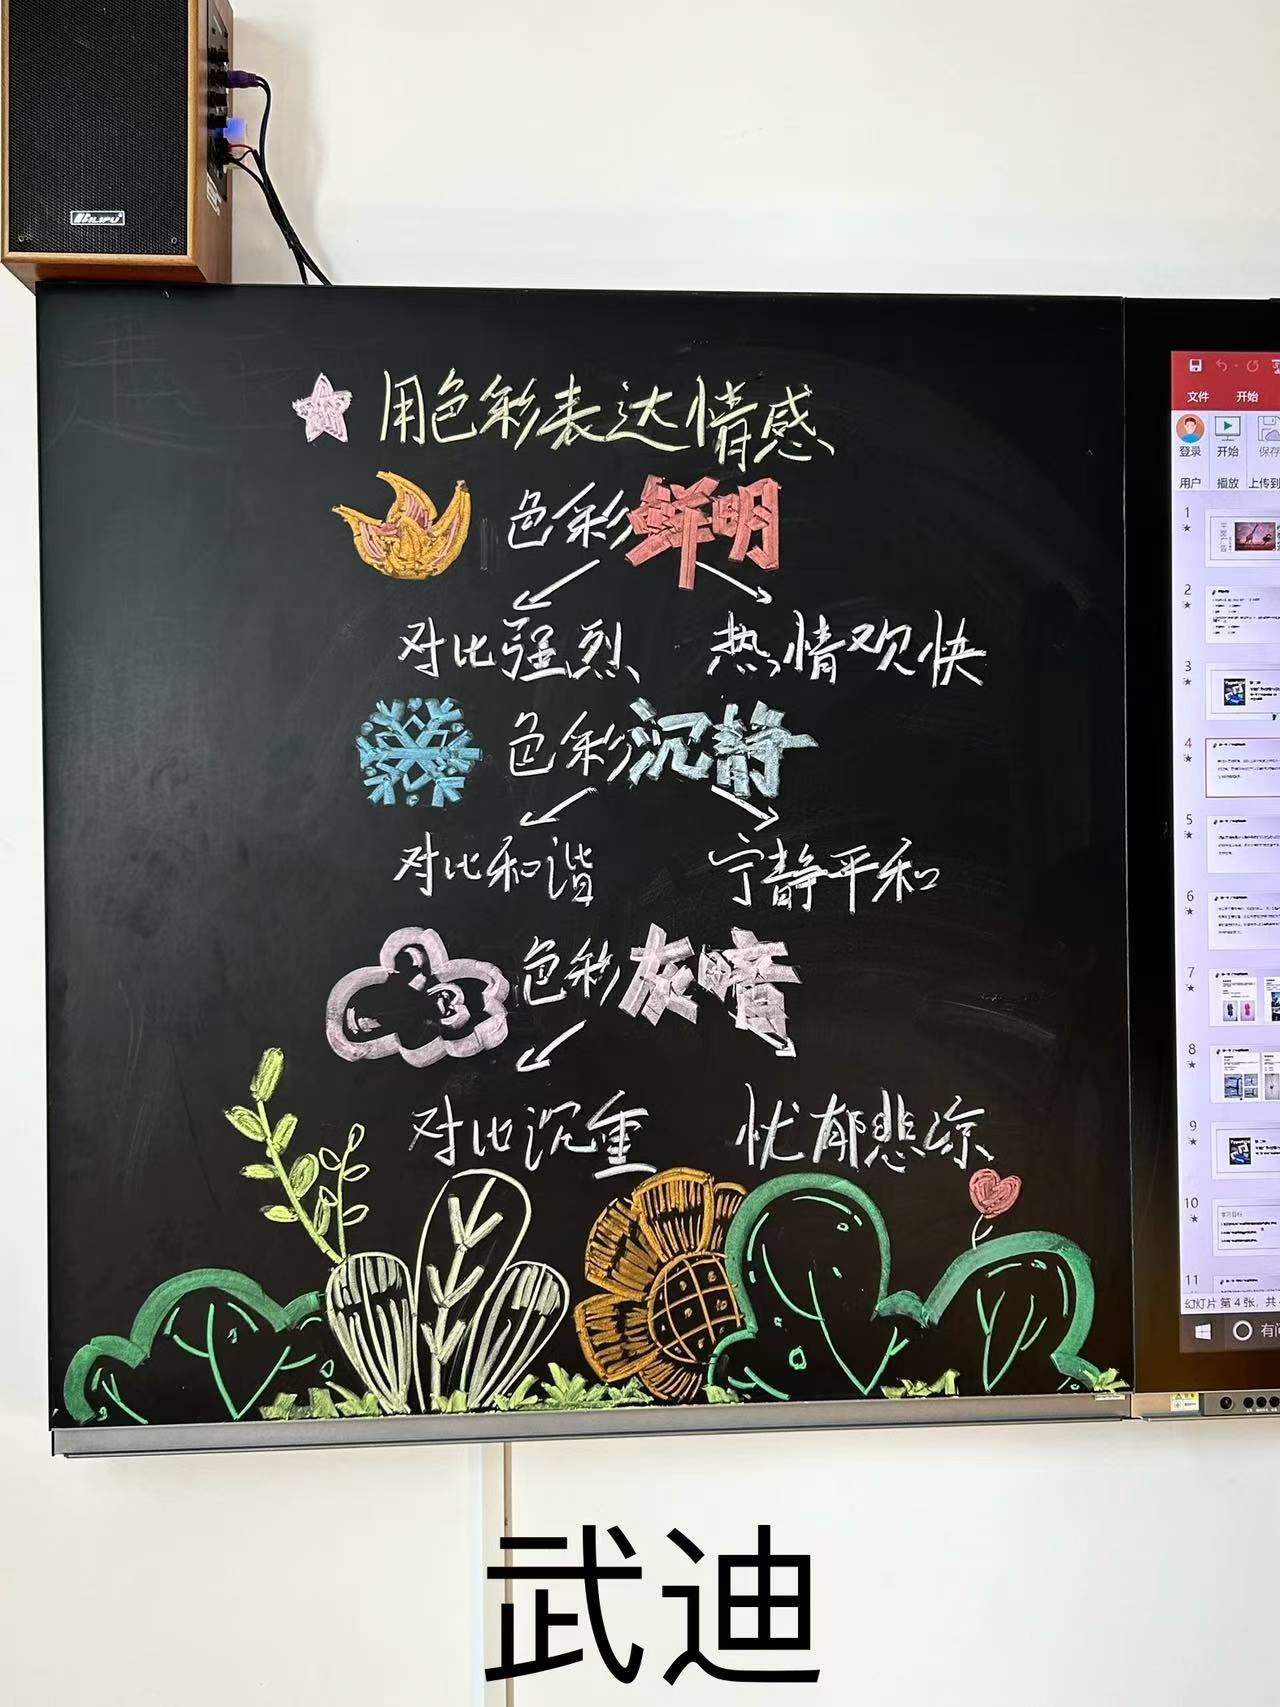 用色彩表达情感
色彩鲜明
对比强烈 热情欢快
色彩沉静
对比和谐 宁静平和
色彩灰暗
对比沉重 忧郁悲凉
文件 开始
登录 开始 保存
用户 播放 上传到
1
2
3
4
5
6
7
8
9
10
学习目标
11
幻灯片 第 4 张，共
武迪